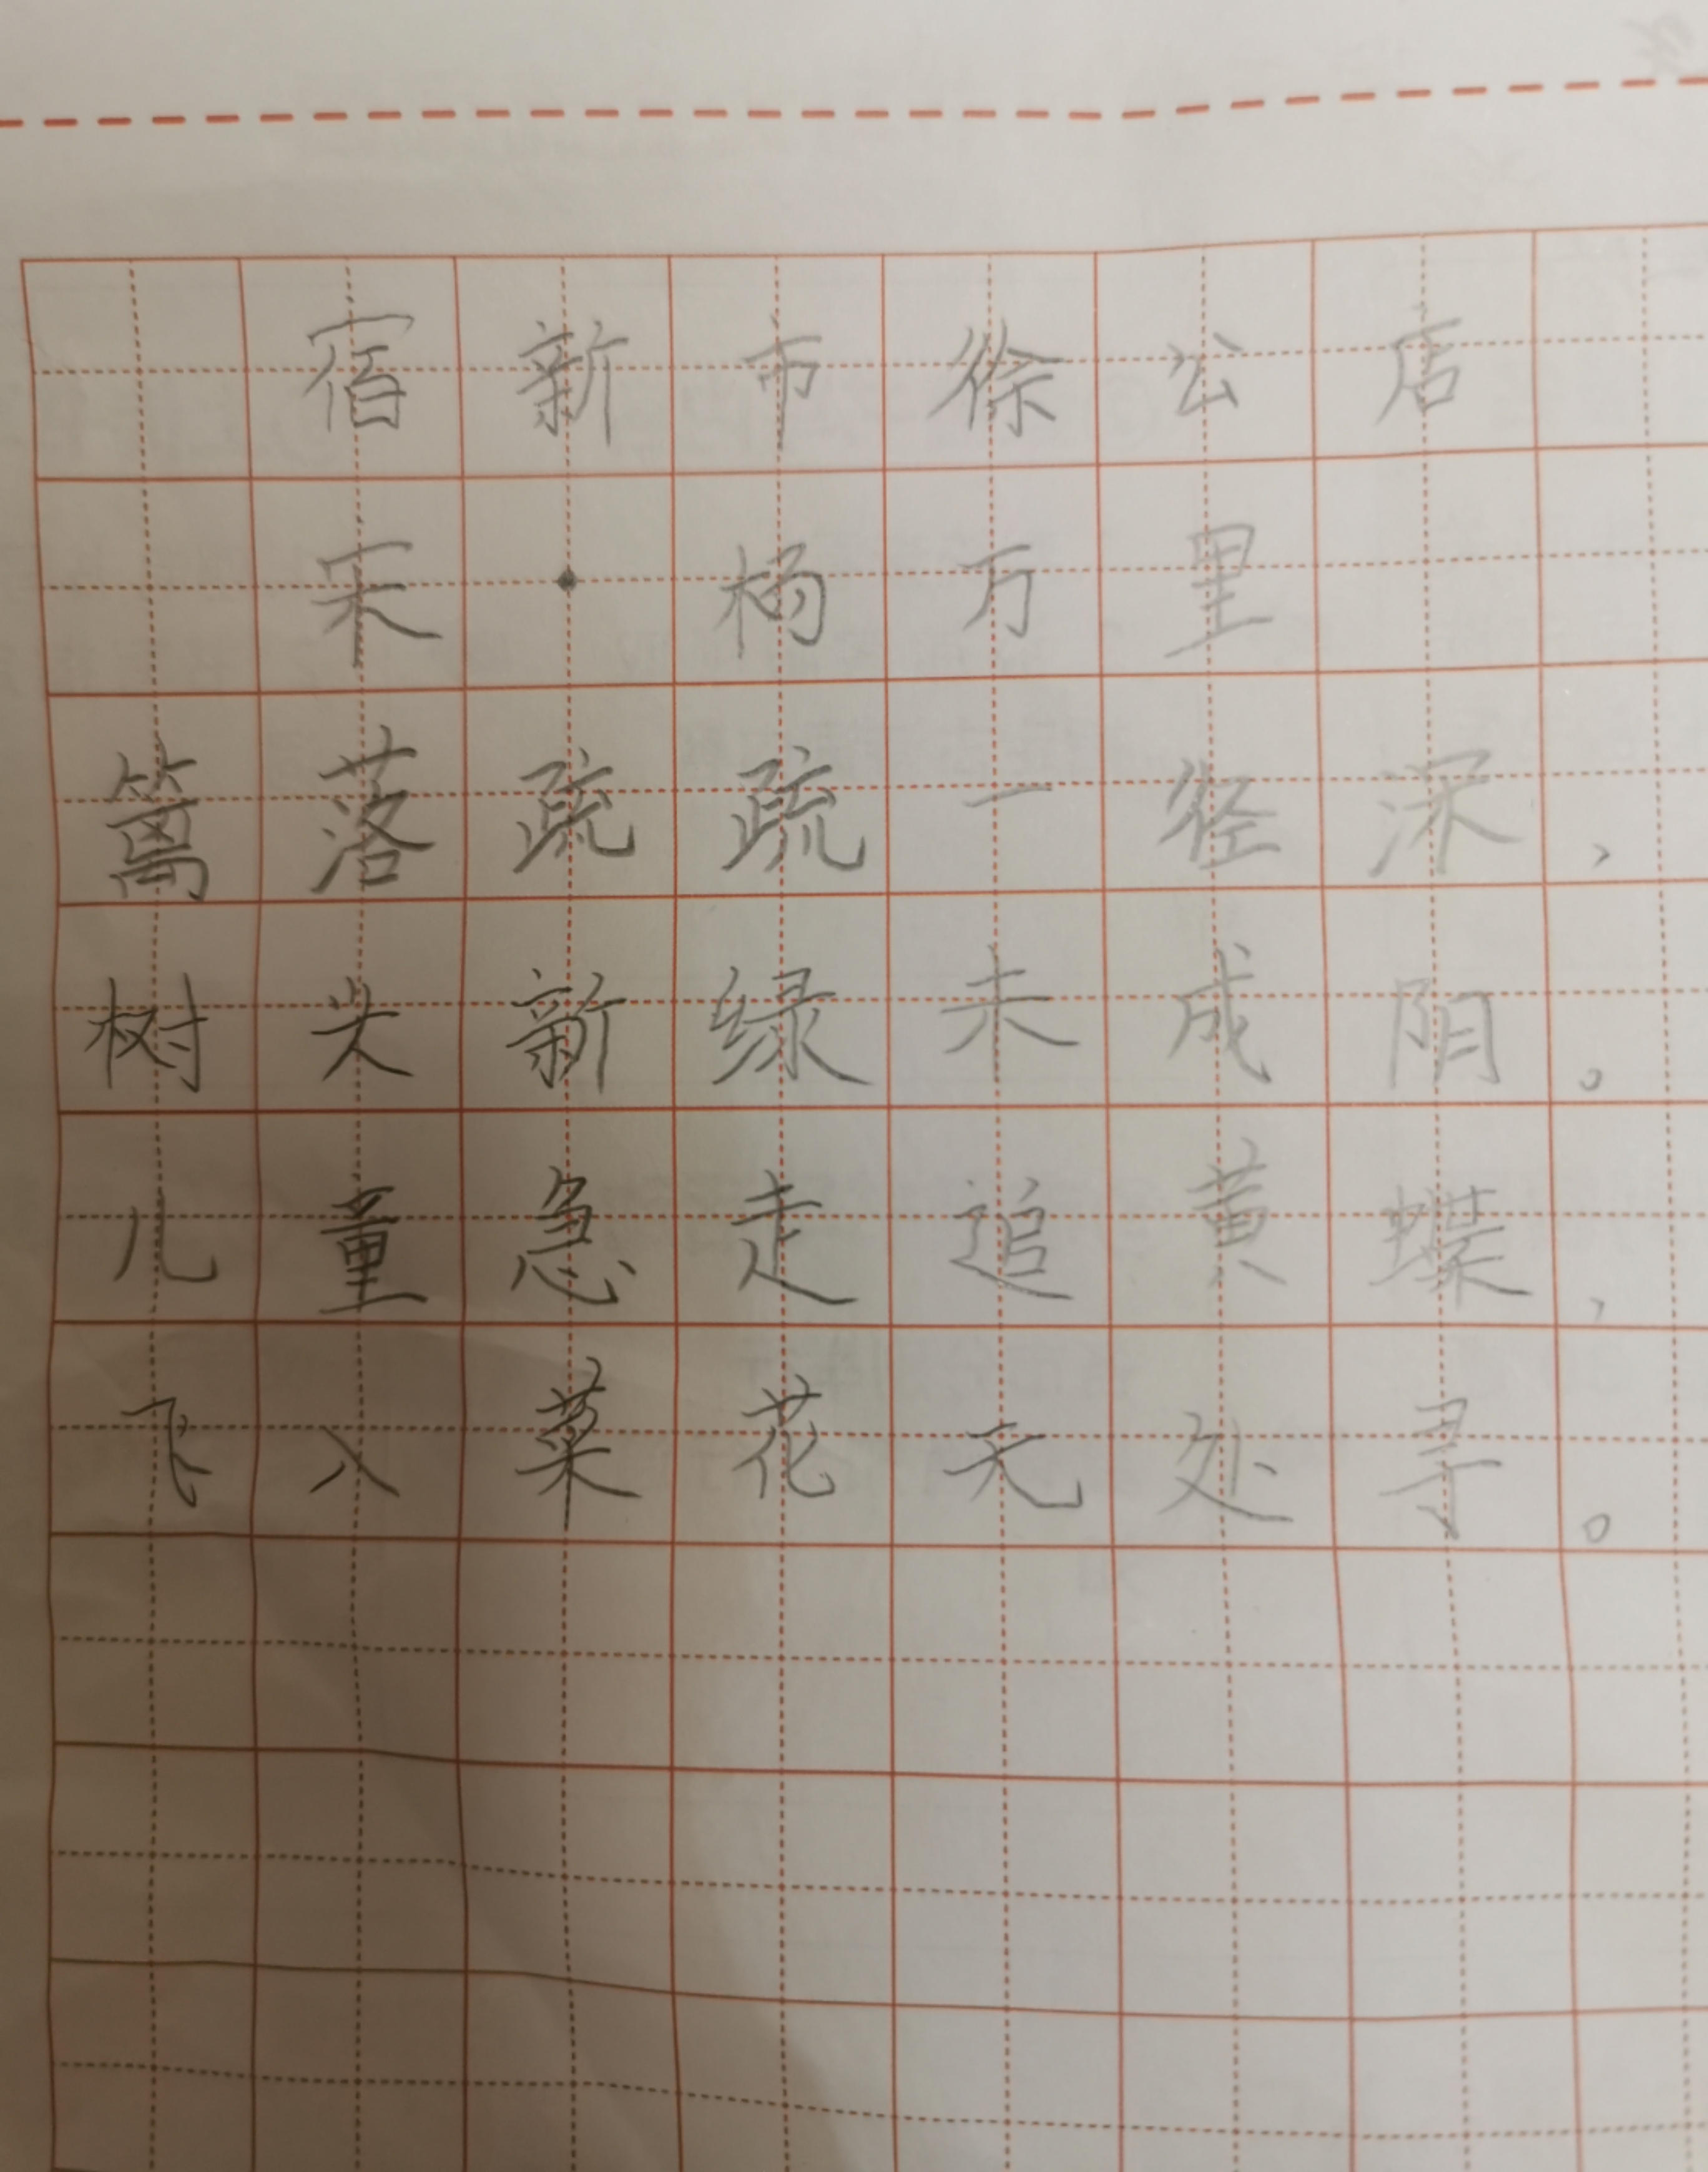 宿新市徐公店
宋·杨万里
篱落疏疏一径深，
树头新绿未成阴。
儿童急走追黄蝶，
飞入菜花无处寻。